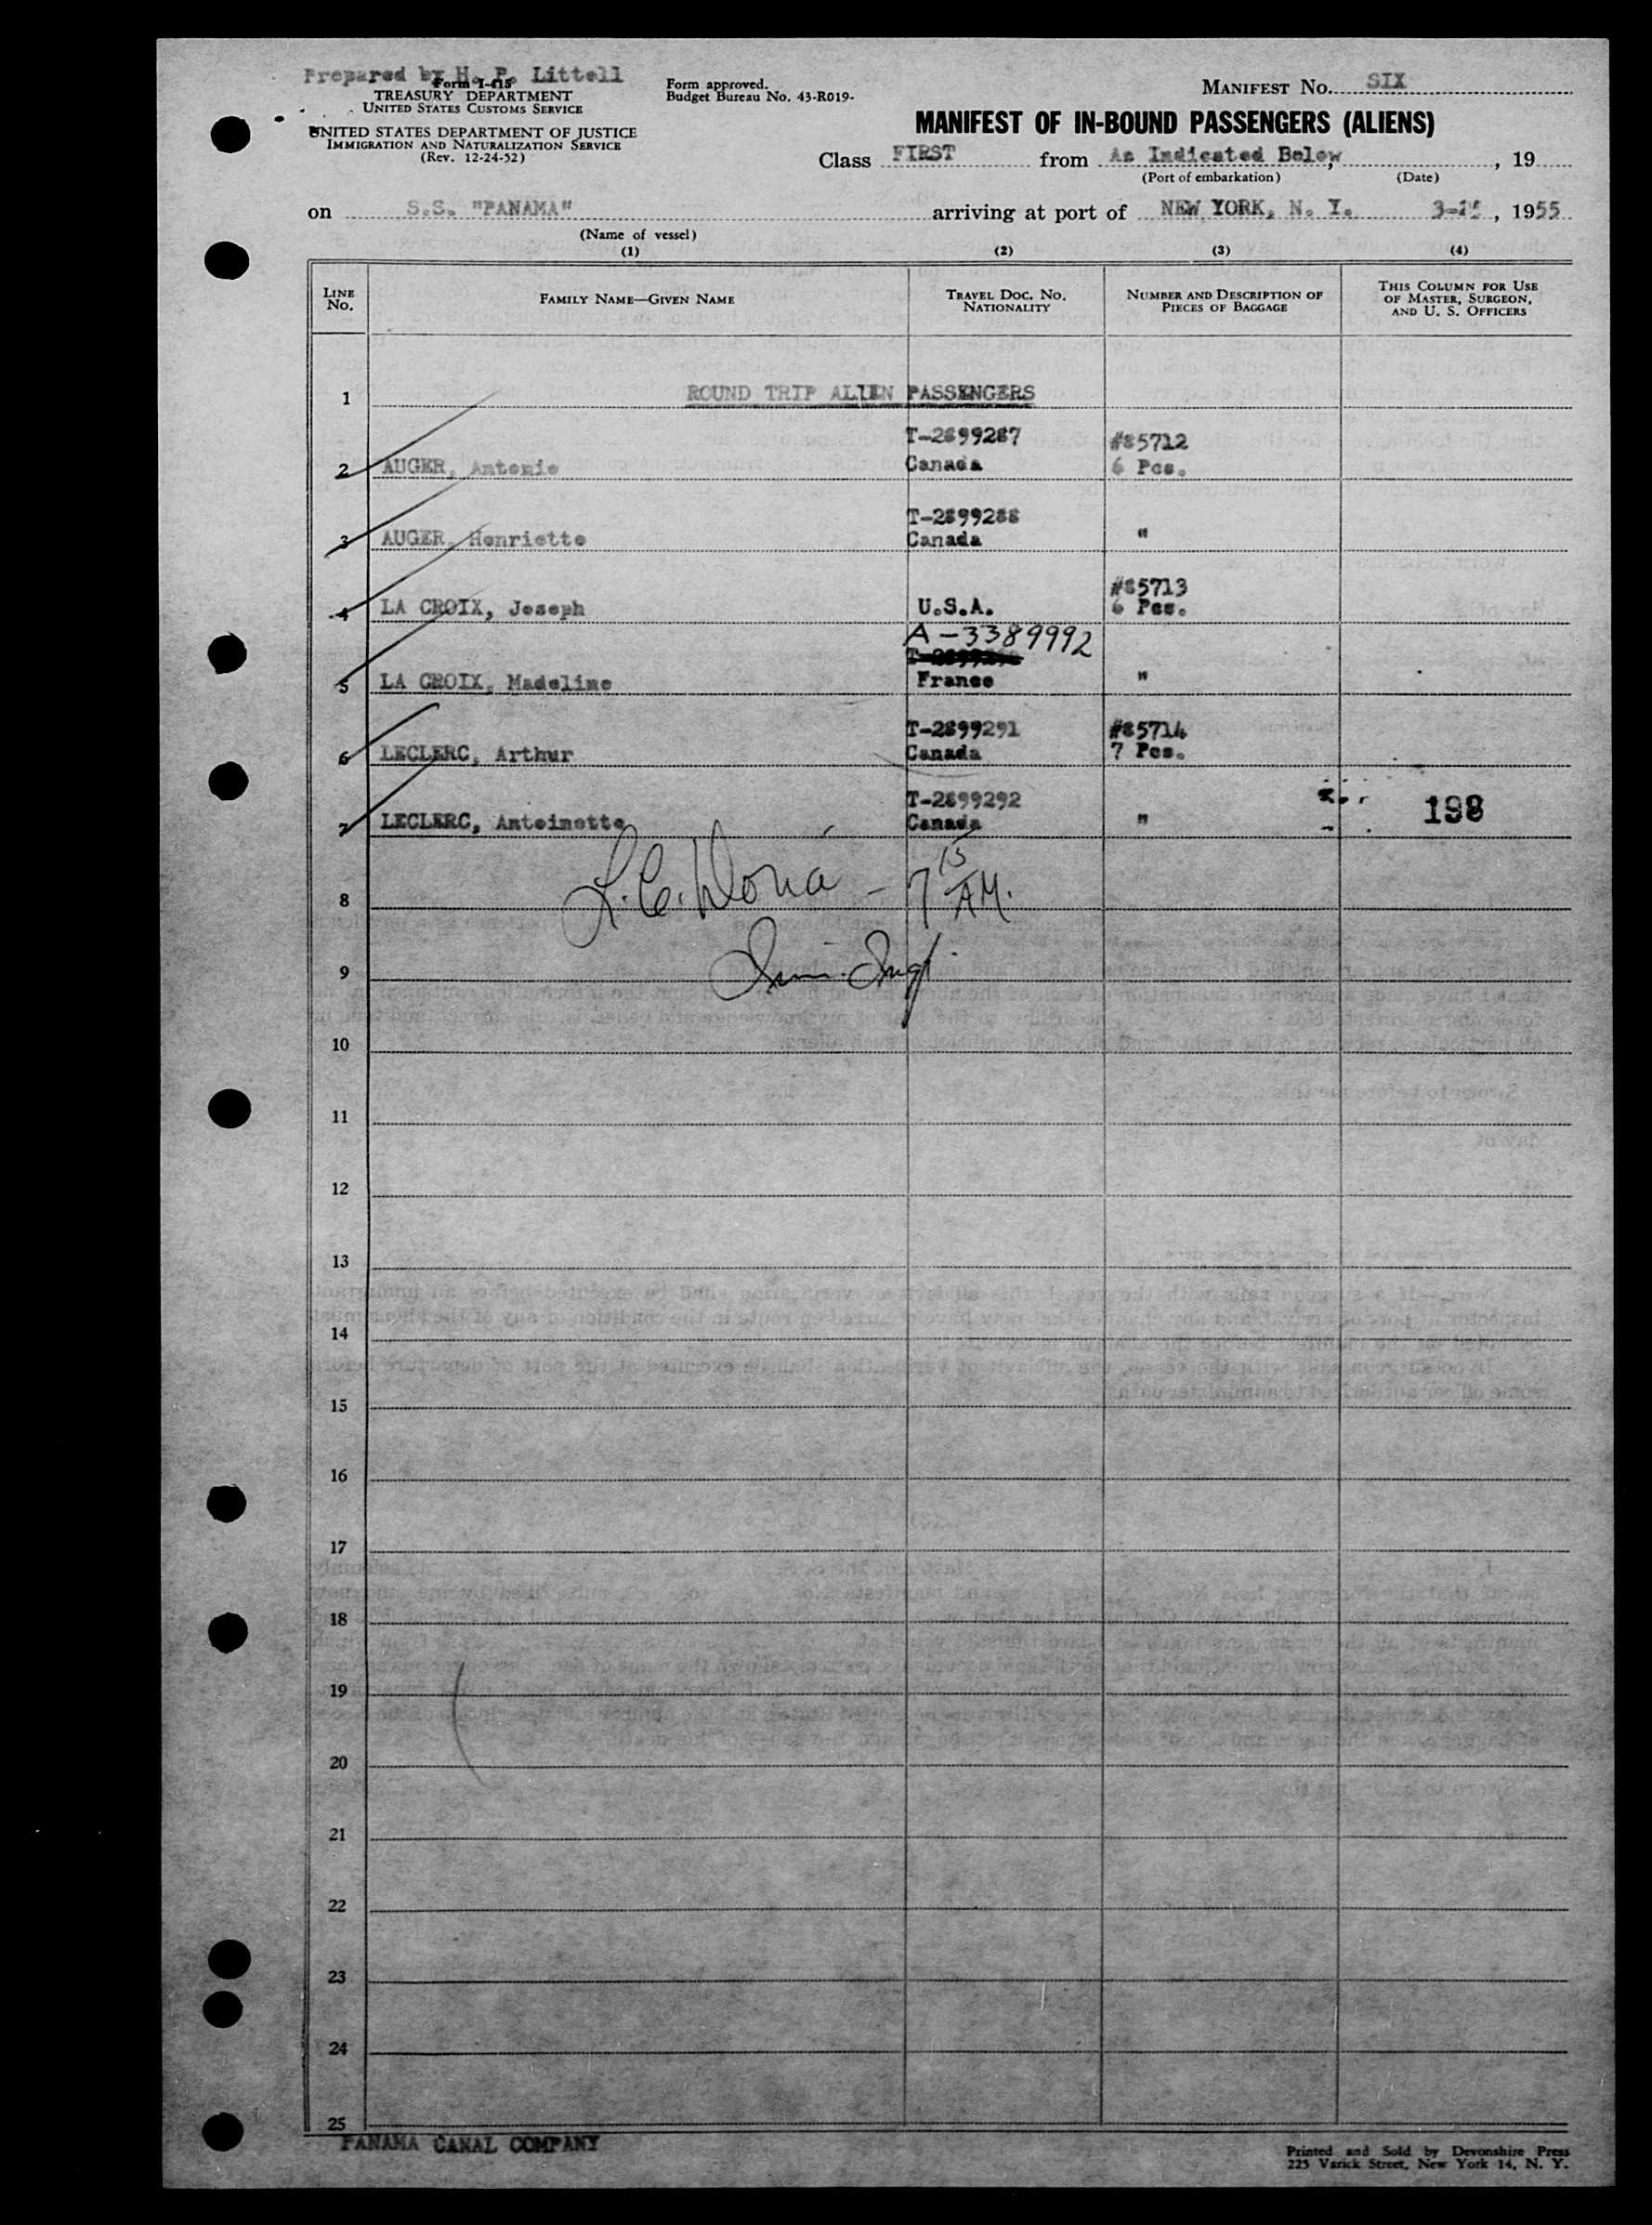 Prepared by H. P. Littell
Form I-415
TREASURY DEPARTMENT
UNITED STATES CUSTOMS SERVICE
UNITED STATES DEPARTMENT OF JUSTICE
IMMIGRATION AND NATURALIZATION SERVICE
(Rev. 12-24-52)
Form approved.
Budget Bureau No. 43-R019-
MANIFEST No. SIX
MANIFEST OF IN-BOUND PASSENGERS (ALIENS)
Class FIRST from As Indicated Below, , 19
(Port of embarkation) (Date)
on S.S. "PANAMA" arriving at port of NEW YORK, N. Y. , 1955
(Name of vessel)
(1) (2) (3) (4)
LINE No. FAMILY NAME—GIVEN NAME TRAVEL DOC. No. NATIONALITY NUMBER AND DESCRIPTION OF PIECES OF BAGGAGE THIS COLUMN FOR USE OF MASTER, SURGEON, AND U. S. OFFICERS
1 ROUND TRIP ALIEN PASSENGERS
T-2899287 #85712
2 AUGER, Antonio Canada 6 Pcs.
T-2899288
3 AUGER, Henriette Canada "
#85713
4 LA CROIX, Joseph U.S.A. 6 Pcs.
A-3389992
5 LA CROIX, Madeline France "
T-2899291 #85714
6 LECLERC, Arthur Canada 7 Pcs.
T-2899292
7 LECLERC, Antoinette Canada " 198
8 7 15 AM.
9 Imm. Insp.
10
11
12
13
14
15
16
17
18
19
20
21
22
23
24
25
PANAMA CANAL COMPANY
Printed and Sold by Devonshire Press
225 Varick Street, New York 14, N. Y.